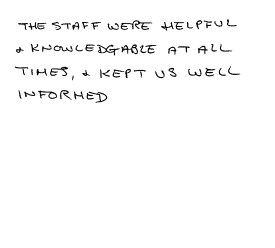 THE STAFF WERE HELPFUL
& KNOWLEDGABLE AT ALL
TIMES, & KEPT US WELL
INFORMED